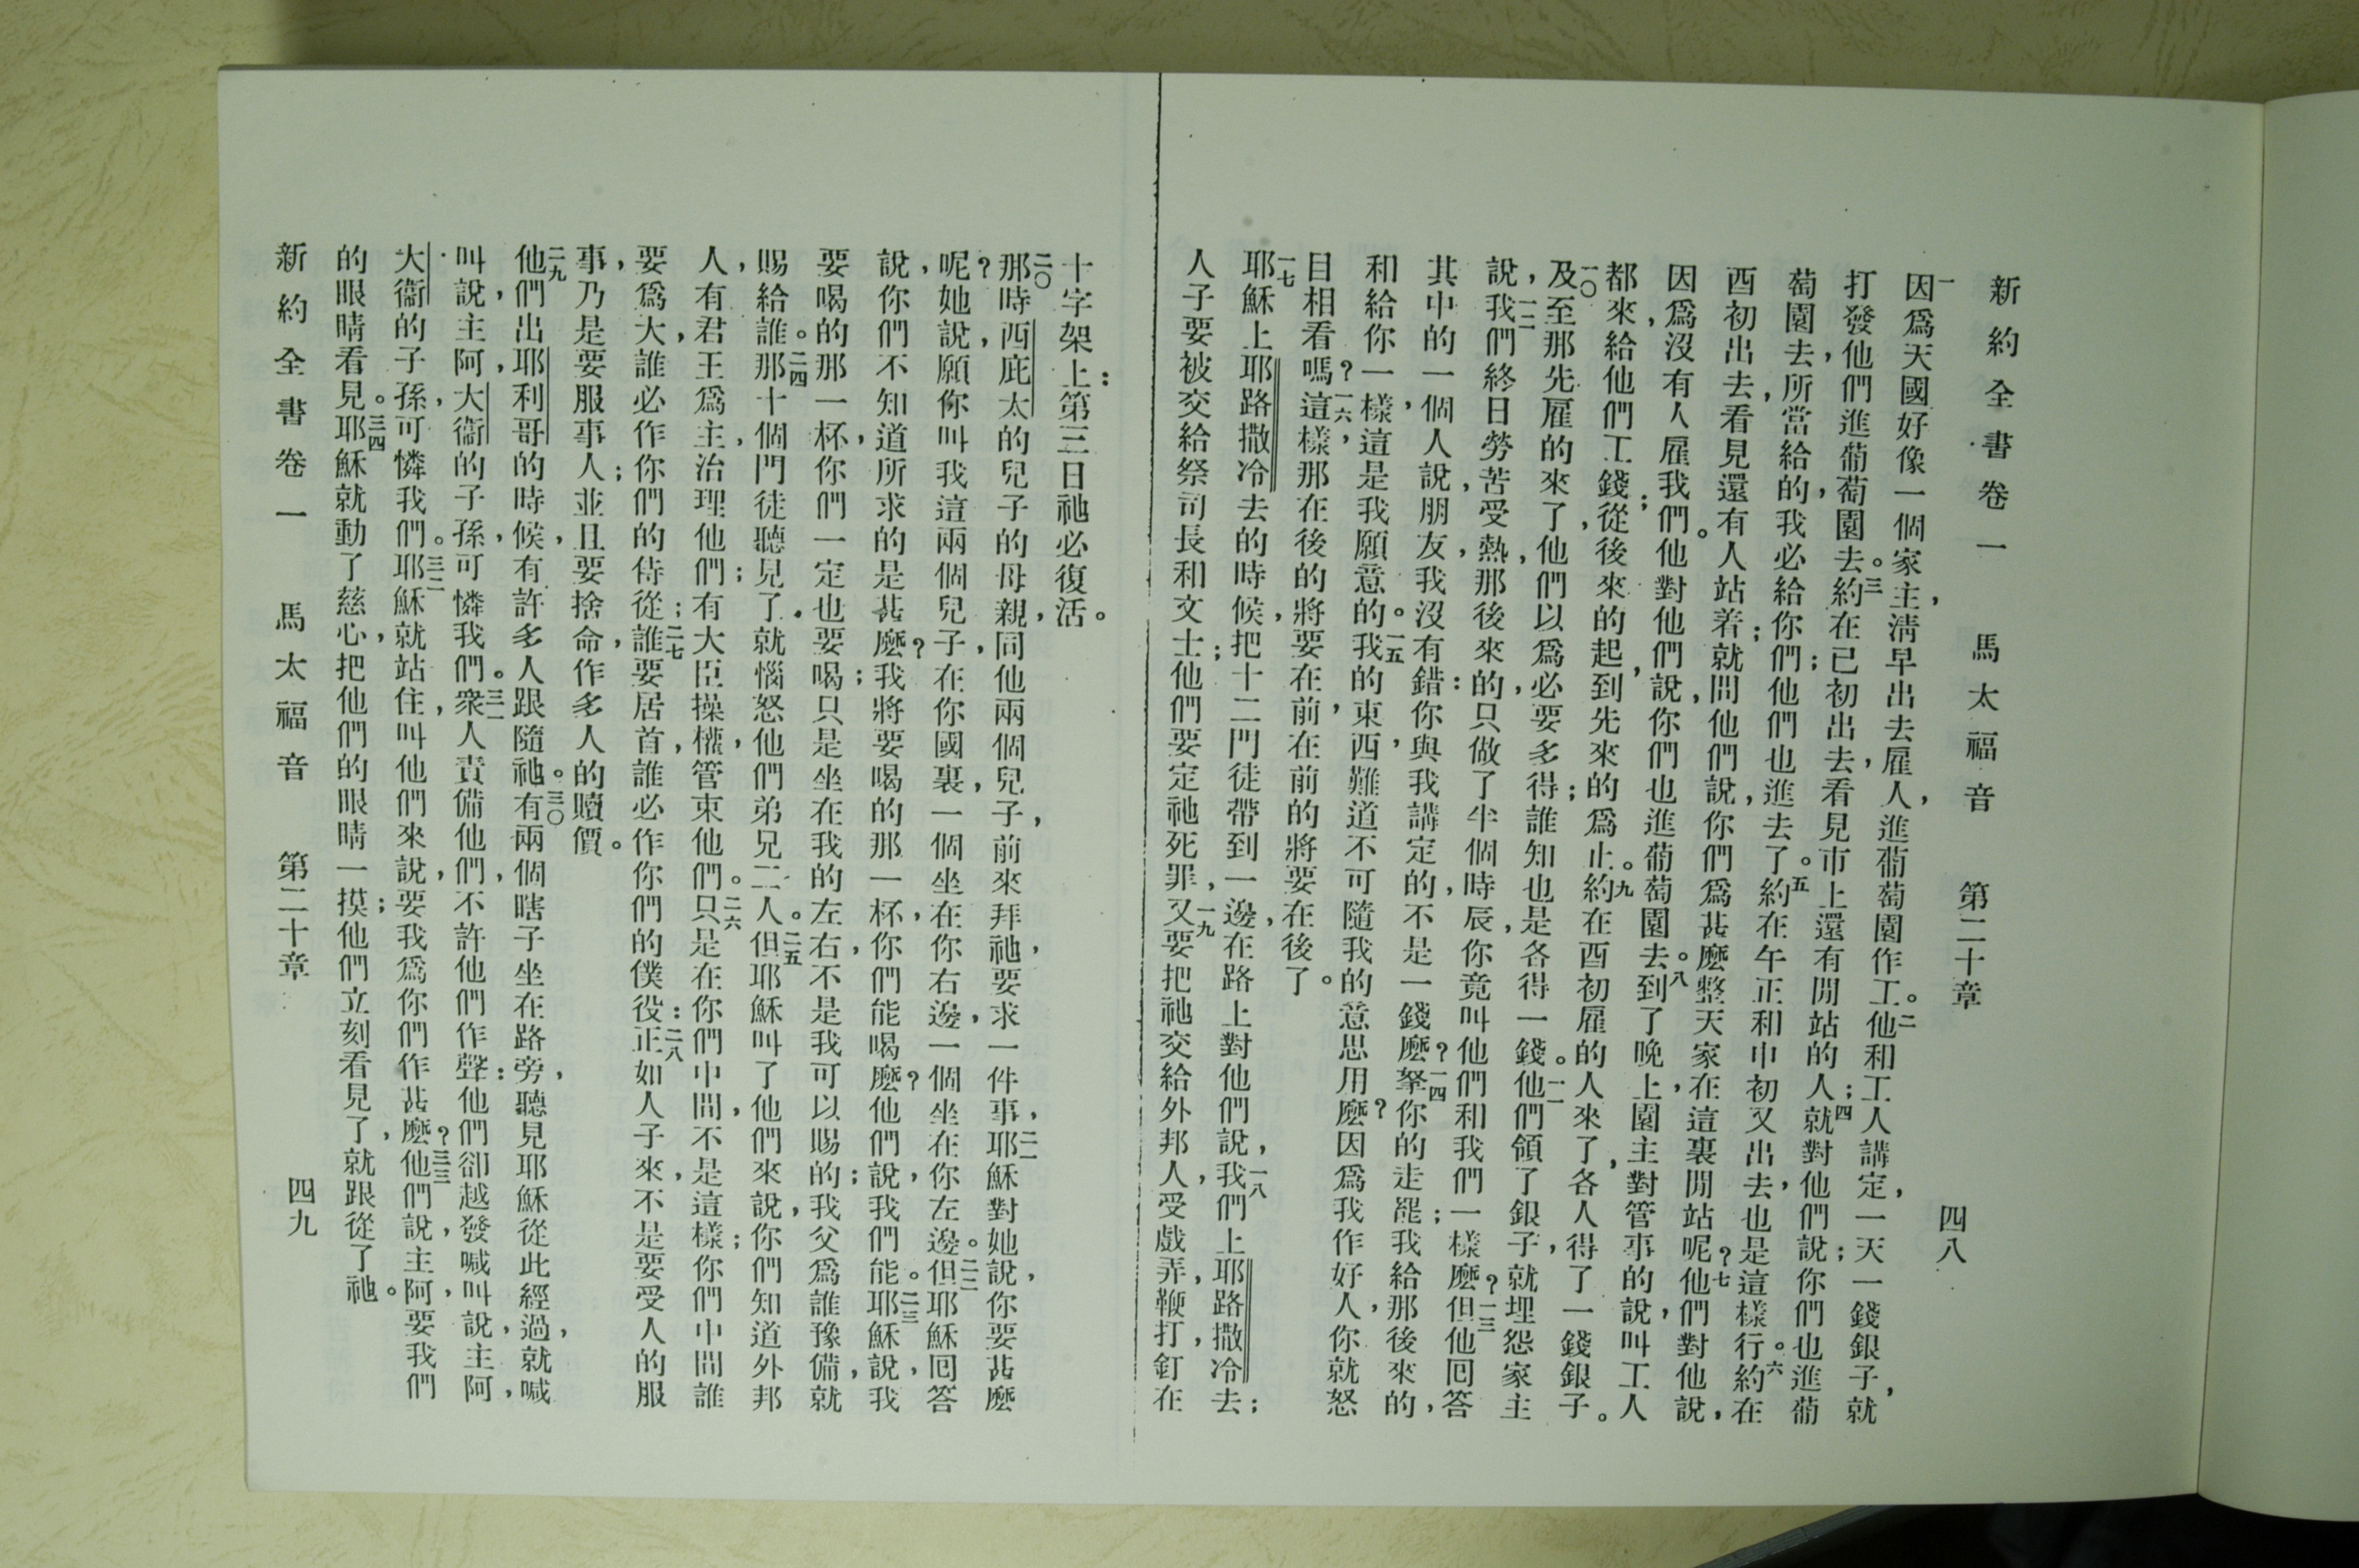 新約全書卷一　馬太福音　第二十章　四八
一因爲天國好像一個家主，淸早出去雇人，進葡萄園作工。二他和工人講定，一天一錢銀子，就
打發他們進葡萄園去。三約在巳初出去，看見市上還有閒站的人；四就對他們說；你們也進葡
萄園去，所當給的，我必給你們；他們也進去了。五約在午正和申初又出去，也是這樣行。六約在
酉初出去，看見還有人站着；就問他們，說，你們爲甚麼整天家在這裏閒站呢？七他們對他說，
因爲沒有人雇我們。他對他們，說，你們也進葡萄園去。八到了晚上，園主對管事的，說，叫工人
都來，給他們工錢；從後來的起，到先來的爲止。九約在酉初雇的人來了，各人得了一錢銀子。
一〇及至那先雇的來了，他們以爲必要多得；誰知也是各得一錢。一一他們領了銀子，就埋怨家主
說，一二我們終日勞苦受熱，那後來的，只做了半個時辰，你竟叫他們和我們一樣麼？一三但他囘答
其中的一個人說，朋友，我沒有錯：你與我講定的，不是一錢麼？一四拏你的走罷；我給那後來的，
和給你一樣，這是我願意的。一五我的東西，難道不可隨我的意思用麼？因爲我作好人，你就怒
目相看嗎？一六這樣，那在後的，將要在前，在前的將要在後了。
一七耶穌上耶路撒冷去的時候，把十二門徒帶到一邊，在路上對他們說，一八我們上耶路撒冷去；
人子要被交給祭司長和文士；他們要定祂死罪，一九又要把祂交給外邦人，受戲弄，鞭打，釘在
十字架上：第三日祂必復活。
二〇那時西庇太的兒子的母親，同他兩個兒子，前來拜祂，要求一件事，二一耶穌對她說，你要甚麼
呢？她說，願你叫我這兩個兒子，在你國裏，一個坐在你右邊，一個坐在你左邊。二二但耶穌囘答
說，你們不知道所求的是甚麼？我將要喝的那一杯，你們能喝麼？他們說，我們能。二三耶穌說，我
要喝的那一杯，你們一定也要喝；只是坐在我的左右，不是我可以賜的；我父爲誰豫備，就
賜給誰。二四那十個門徒聽見了，就惱怒他們弟兄二人。二五但耶穌叫了他們來說，你們知道外邦
人，有君王爲主，治理他們；有大臣操權，管束他們。二六只是在你們中間，不是這樣；你們中間誰
要爲大，誰必作你們的侍從；二七誰要居首，誰必作你們的僕役：二八正如人子來，不是要受人的服
事，乃是要服事人；並且要捨命，作多人的贖價。
二九他們出耶利哥的時候，有許多人跟隨祂。三〇有兩個瞎子坐在路旁，聽見耶穌從此經過，就喊
叫，說，主阿，大衞的子孫，可憐我們。三一衆人責備他們，不許他們作聲：他們卻越發喊叫說，主阿，
大衞的子孫，可憐我們。三二耶穌就站住，叫他們來，說，要我爲你們作甚麼？三三他們說，主阿，要我們
的眼睛看見。三四耶穌就動了慈心，把他們的眼睛一摸；他們立刻看見了，就跟從了祂。
新約全書卷一　馬太福音　第二十章　四九